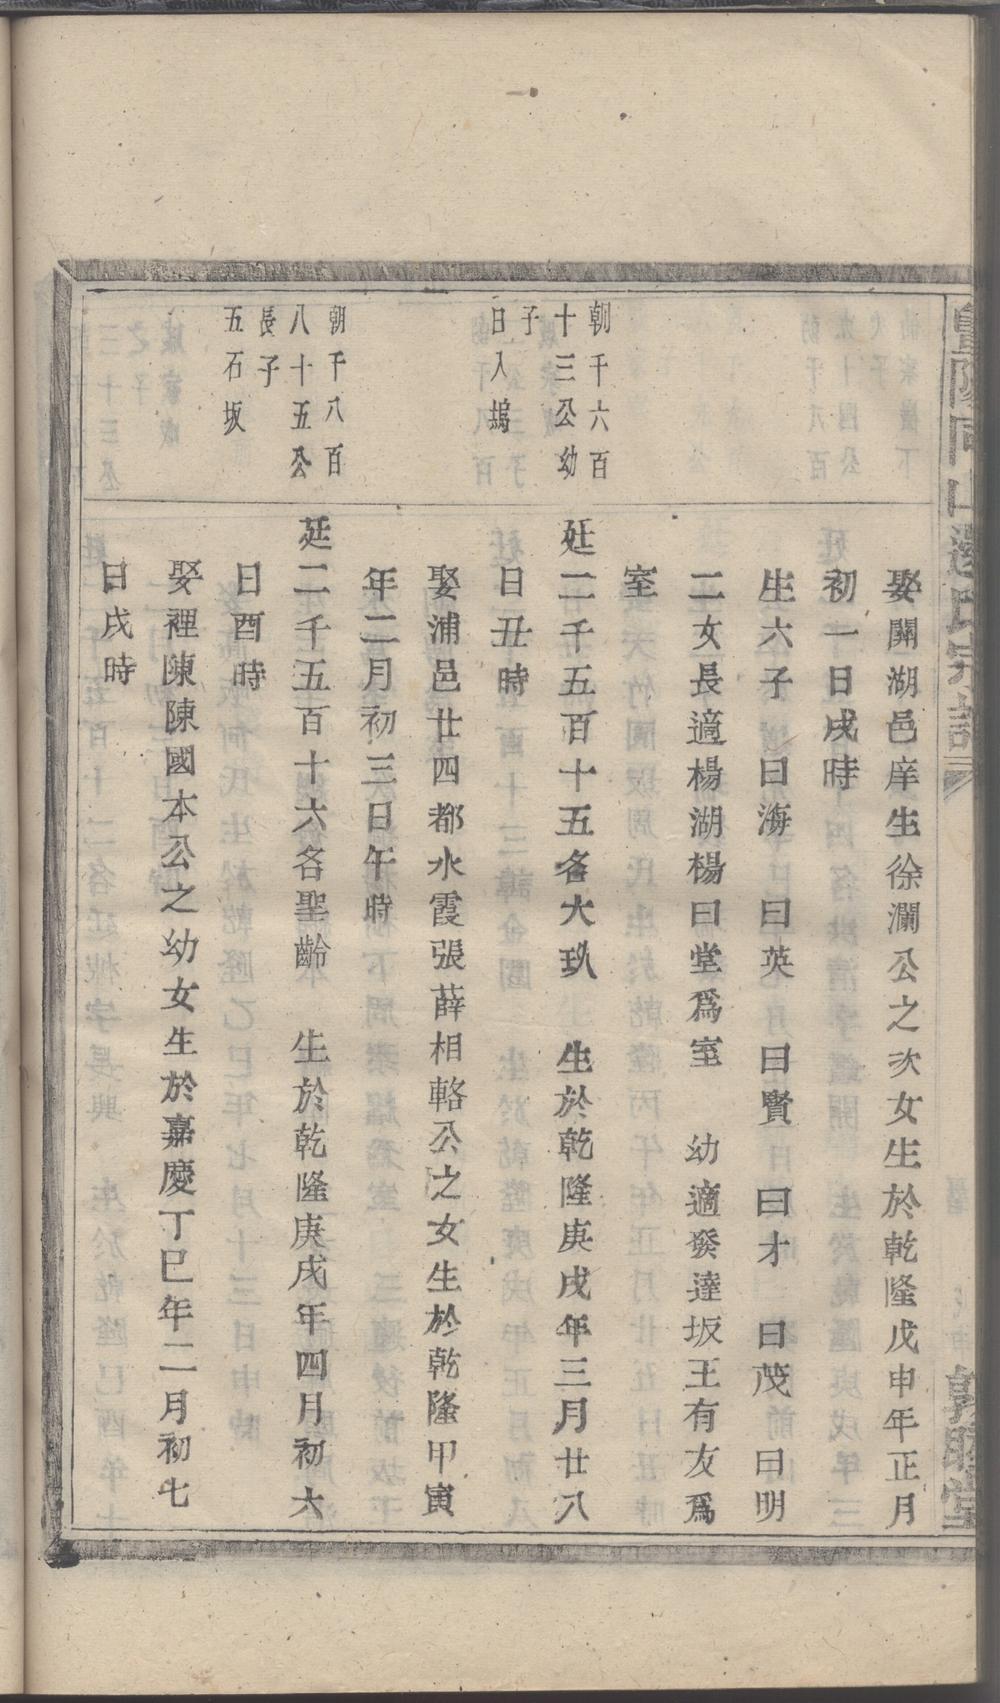 娶關湖邑庠生徐瀾公之次女生於乾隆戊申年正月
初一日戌時
生六子曰海 曰英 曰賢 曰才 曰茂 曰明
二女長適楊湖楊曰堂爲室 幼適發達坂王有友爲
室
朝千六百
十三公幼
子
日入塢
廷二千五百十五名大玖 生於乾隆庚戌年三月廿八
日丑時
娶浦邑廿四都水霞張薛相輅公之女生於乾隆甲寅
年二月初三日午時
朝千八百
八十五公
長子
五石坂
廷二千五百十六名聖齡 生於乾隆庚戌年四月初六
日酉時
娶裡陳陳國本公之幼女生於嘉慶丁巳年二月初七
日戌時